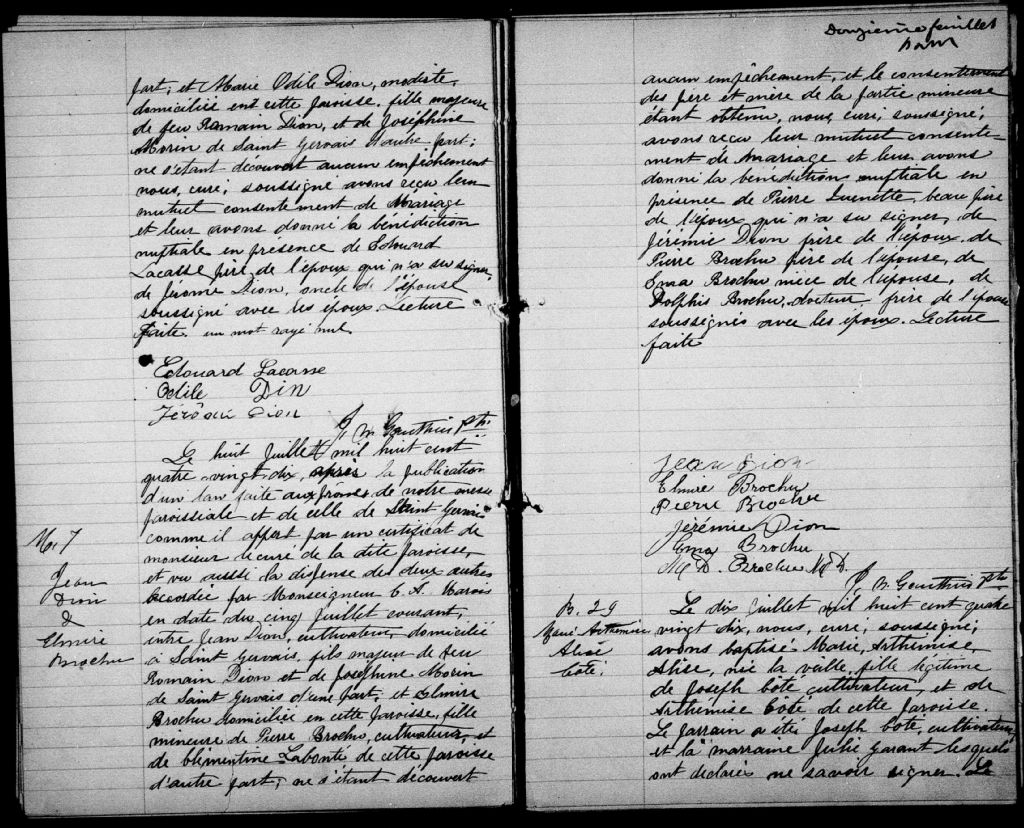 part, et Marie Odile Dion, modiste,
domiciliée en cette paroisse, fille majeure
de feu Romain Dion, et de Joséphine
Morin de Saint Gervais d'autre part;
ne s'étant découvert aucun empêchement
nous, curé, soussigné avons reçu leur
mutuel consentement de Mariage
et leur avons donné la bénédiction
nuptiale en presence de Edouard
Lacasse père de l'époux qui n'a su signer,
de Jérôme Dion, oncle de l'épouse
soussigné avec les époux. Lecture
faite. un mot rayé nul
Edouard Lacasse
Odile Din
Jérôme Dion
J. N. Gouthier Ptre
Le huit Juillet mil huit cent
quatre vingt dix, après la publication
d'un ban faite aux prônes de notre messe
paroissiale et de celle de Saint Gervais
comme il appert par un certificat de
monsieur le curé de la dite paroisse,
et vu aussi la dispense des deux autres
accordée par Monseigneur C. A. Marois
en date du cinq Juillet courant,
entre Jean Dion, cultivateur, domicilié
à Saint Gervais, fils majeur de feu
Romain Dion et de Joséphine Morin
de Saint Gervais d'une part, et Elmire
Brochu domiciliée en cette paroisse, fille
mineure de Pierre Brochu, cultivateur, et
de Clémentine Labonté de cette paroisse
d'autre part; ne s'étant découvert
M. 7
Jean
Dion
&
Elmire
Brochu
Douzième feuillet
aucun empêchement, et le consentement
des père et mère de la partie mineure
étant obtenu, nous, curé, soussigné,
avons reçu leur mutuel consente-
ment de mariage et leur avons
donné la bénédiction nuptiale en
présence de Pierre beau père
de l'époux qui n'a su signer, de
Jérémie Dion frère de l'époux, de
Pierre Brochu père de l'épouse, de
Ema Brochu nièce de l'épouse, de
Dolphis Brochu, docteur, frère de l'épouse
soussignés avec les époux. Lecture
faite
Jean Dion
Elmire Brochu
Pierre Brochu
Jérémie Dion
Ema Brochu
D. Brochu M.D.
J. N. Gouthier Ptre
B. 29
Marie Arthémise
Alise
Côté.
Le dix Juillet mil huit cent quatre
vingt dix, nous, curé, soussigné,
avons baptisé Marie, Arthémise,
Alise, née la veille, fille légitime
de Joseph Côté cultivateur, et de
Arthémise Côté de cette paroisse.
Le parrain a été Joseph Côté, cultivateur,
et la marraine Julie Garant lesquels
ont déclaré ne savoir signer. Le